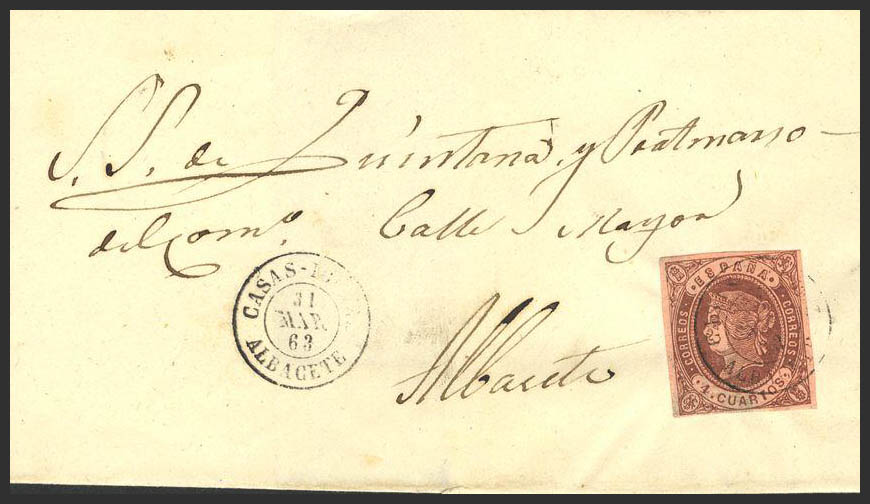 S. S. de Quintana y Pratmarso
del Comº. Calle Mayor
Albacete
CASAS-
31
MAR
63
ALBACETE
ESPAÑA
CORREOS
CORREOS
4. CUARTOS